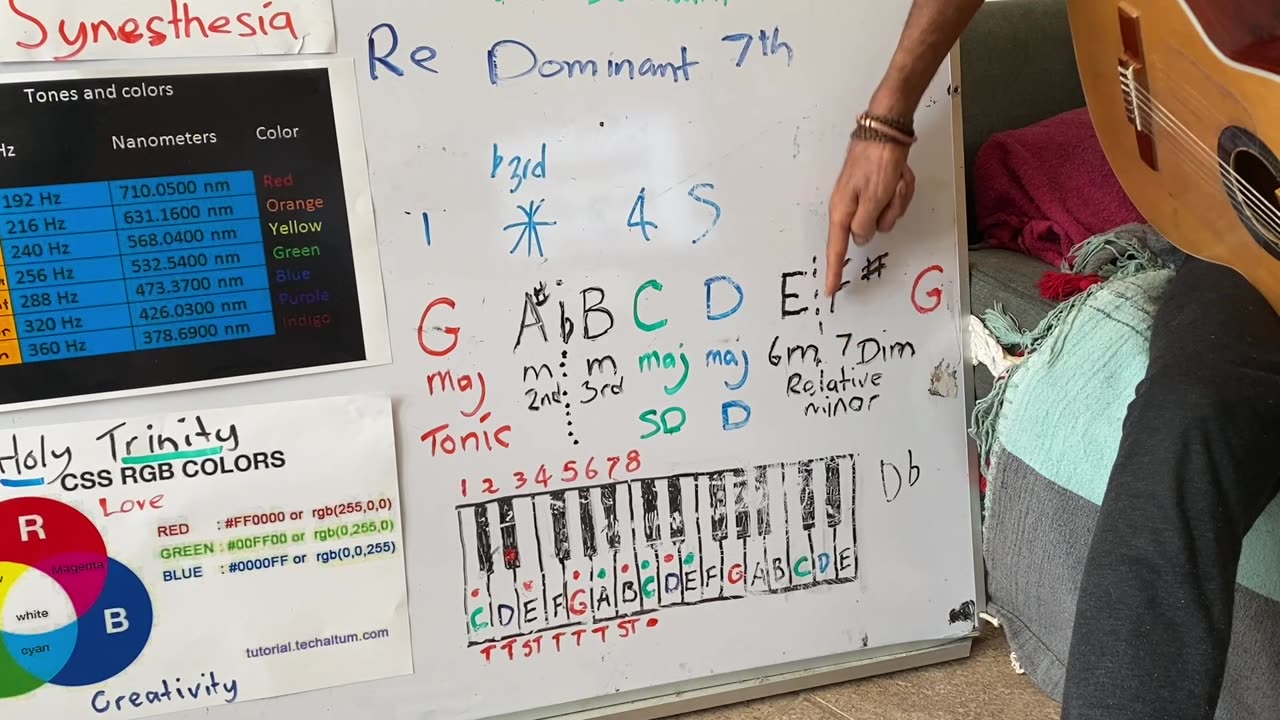 Synesthesia
Tones and colors
Hz Nanometers Color
192 Hz 710.0500 nm Red
216 Hz 631.1600 nm Orange
240 Hz 568.0400 nm Yellow
256 Hz 532.5400 nm Green
288 Hz 473.3700 nm Blue
320 Hz 426.0300 nm Purple
360 Hz 378.6900 nm Indigo
Holy Trinity
CSS RGB COLORS
Love
RED : #FF0000 or rgb(255,0,0)
GREEN : #00FF00 or rgb(0,255,0)
BLUE : #0000FF or rgb(0,0,255)
R
Magenta
white
B
cyan
tutorial.techaltum.com
Creativity
Re Dominant 7th
b3rd
1 * 4 5
G A# bB C D E F# G
maj m m maj maj 6m 7Dim
2nd 3rd Relative
minor
Tonic SD D
1 2 3 4 5 6 7 8
Db
C D E F G A B C D E F G A B C D E
T T ST T T T ST